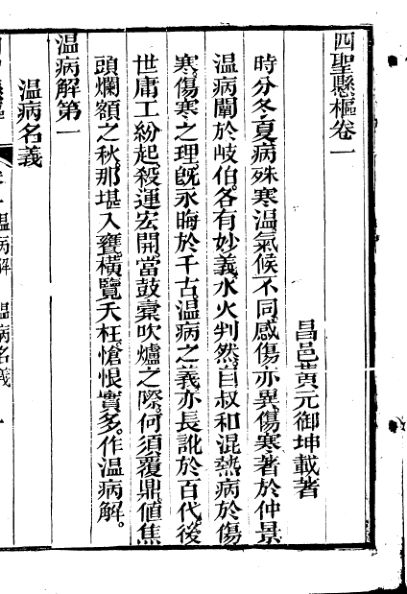 四聖懸樞卷一
昌邑黄元御坤載著
時分冬夏病殊寒温氣候不同感傷亦異傷寒著於仲景
温病闡於岐伯各有妙義水火判然自叔和混熱病於傷
寒傷寒之理旣永晦於千古温病之義亦長訛於百代後
世庸工紛起殺運宏開當鼓橐吹爐之際何須覆鼎値焦
頭爛額之秋那堪入甕橫覽夭枉愴恨實多作温病解
温病解第一
温病名義
温病解 温病名義 一